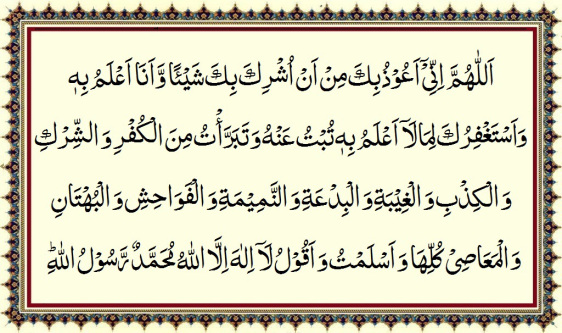 اَللّٰهُمَّ اِنِّیْۤ اَعُوْذُ بِكَ مِنْ اَنْ اُشْرِكَ بِكَ شَیْئًا وَّ اَنَا اَعْلَمُ بِهٖ
وَ اَسْتَغْفِرُكَ لِمَا لَاۤ اَعْلَمُ بِهٖ تُبْتُ عَنْهُ وَ تَبَرَّأْتُ مِنَ الْكُفْرِ وَ الشِّرْكِ
وَ الْكِذْبِ وَ الْغِیْبَةِ وَ الْبِدْعَةِ وَ النَّمِیْمَةِ وَ الْفَوَاحِشِ وَ الْبُهْتَانِ
وَ الْمَعَاصِیْ كُلِّهَا وَ اَسْلَمْتُ وَ اَقُوْلُ لَاۤ اِلٰهَ اِلَّا اللّٰهُ مُحَمَّدٌ رَّسُوْلُ اللّٰهِؕ